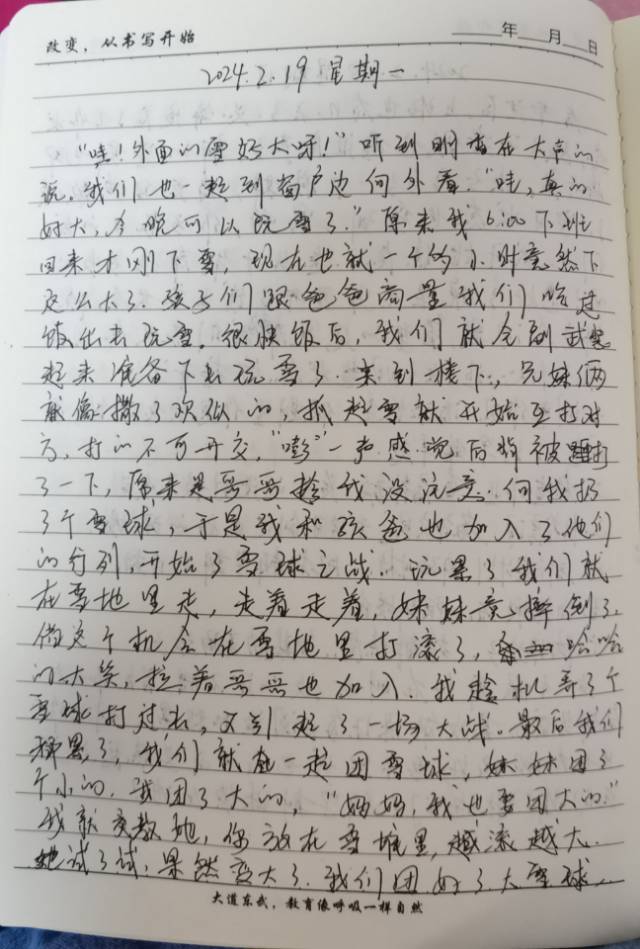 改变，从书写开始
年 月 日
2024.2.19 星期一
“哇！外面的雪好大呀！”听到明杏在大声的
说，我们也一起到窗户边向外看。“哇，真的
好大，今晚可以玩雪了。”原来我6:00下班
回来才刚下雪，现在也就一个多小时竟然下
这么大了。孩子们跟爸爸商量我们吃过
饭出去玩雪。很快饭后，我们就全副武装
起来准备下去玩雪了。来到楼下，兄妹俩
就像撒了欢似的，抓起雪就开始互打对
方，打的不可开交，“嘭”一声感觉后背被打
了一下，原来是哥哥趁我没注意向我扔
了个雪球，于是我和孩爸也加入了他们
的行列，开始了雪球之战。玩累了我们就
在雪地里走，走着走着，妹妹竟摔倒了，
借这个机会在雪地里打滚了，哈哈
的大笑，拉着哥哥也加入。我趁机弄了个
雪球打过去，又引起了一场大战。最后我们
都累了，我们就在一起团雪球，妹妹团了
个小的，我团了大的，“妈妈，我也要团大的”
我就交教她，你放在雪堆里，越滚越大。
她试了试，果然变大了。我们团好了大雪球，
大道东武，教育像呼吸一样自然